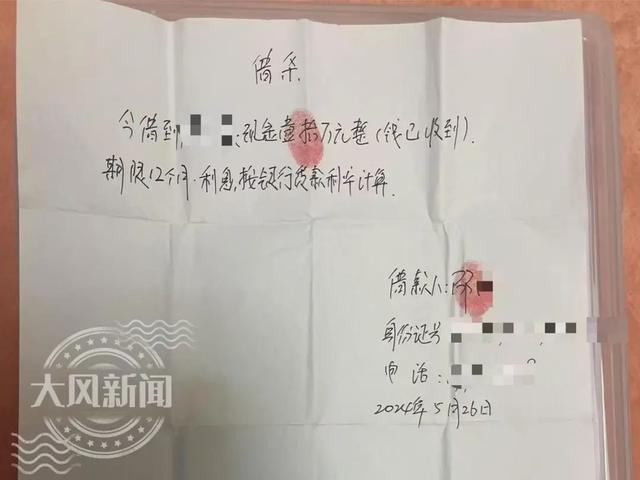 借条
今借到 现金壹拾万元整(钱已收到).
期限12个月.利息,按银行贷款利率计算.
借款人:邓
身份证号
电话:
2024年5月26日
大风新闻